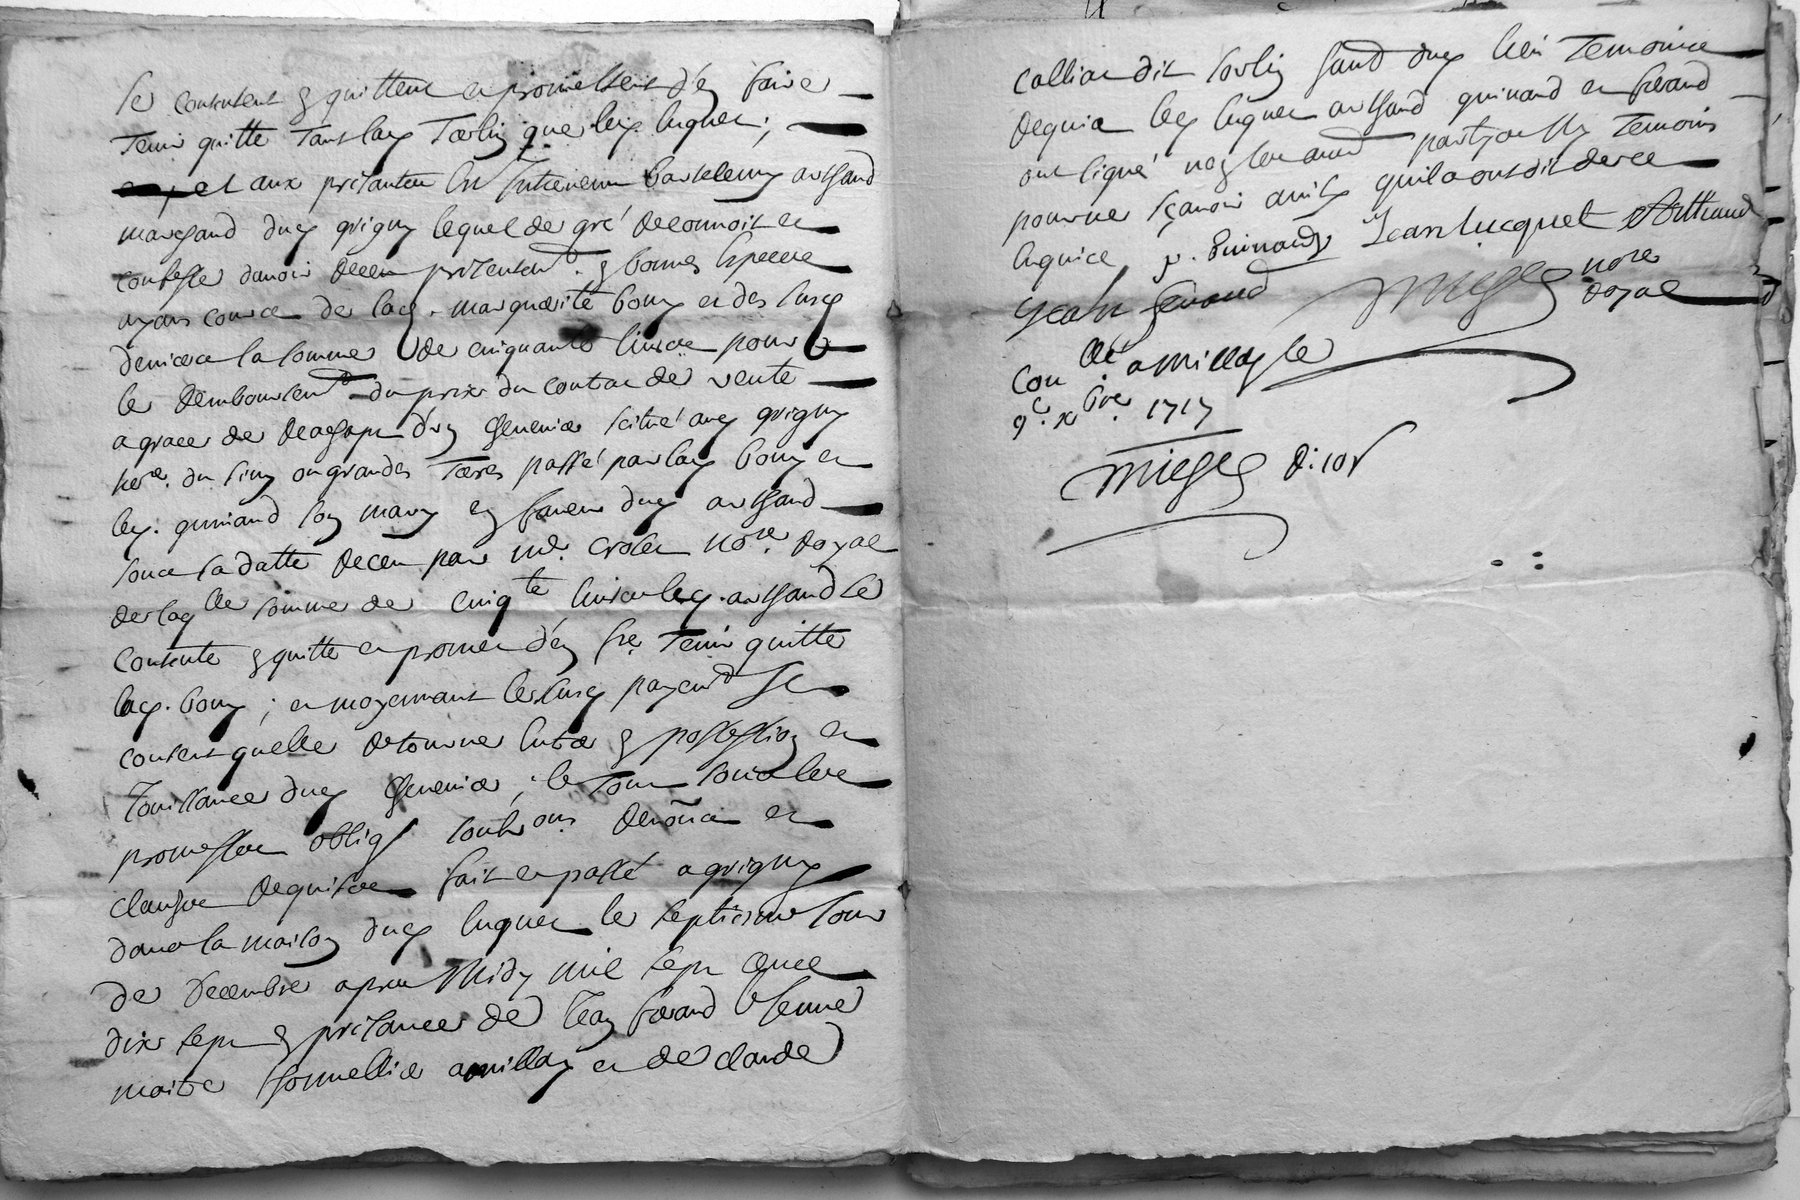 se contentent & quittent et promettent d'en faire
tenir quitte tant lad. Terlin que led. luquet;
et aux presantes est intervenu barthelemy arthaud
marchand dud grigny lequel de gré reconnoit et
confesse d'avoir receu presentemt. & bonnes especes
ayans cours de lad. marguerite bony et des susd
deniers la somme de cinquante livres pour
le remboursemt du prix du contrat de vente
a grace de rachapt d'un chenevier scitué aud grigny
terre. du ou grandes Terres passé par lad bony et
led. guinand son mary en faveur dud arthaud
sous sa datte receu par me. nore. royal
de laqlle somme de cinqte livres led. arthaud se
contente & quitte et promet d'en fre. tenir quitte
lad. bony; et moyennant le susd payemt il
consent quelle retourne entrer & possession et
jouissance dud chenevier; le tout sous les
promesses oblig soubons renon͠a et
clauses requises fait et passé a grigny
dans la maison dud luquet le septieme jour
de decembre apres Midy mil sept cents
dix sept & presance de Jean ferand le jeune
maitre thonnellier a millay et de claude
calliat dit sorlin dud lieu temoins
requis led luquet arthaud guinand et ferand
ont signé non les autres parties ny temoins
pour ne sçavoir ainsy quils ont dit de ce
enquis p. Guinand Jean lucquet Arthaud
Jean ferand Mieges nore
royal
con lle a millay le
9e. xbre. 1717
Mieges